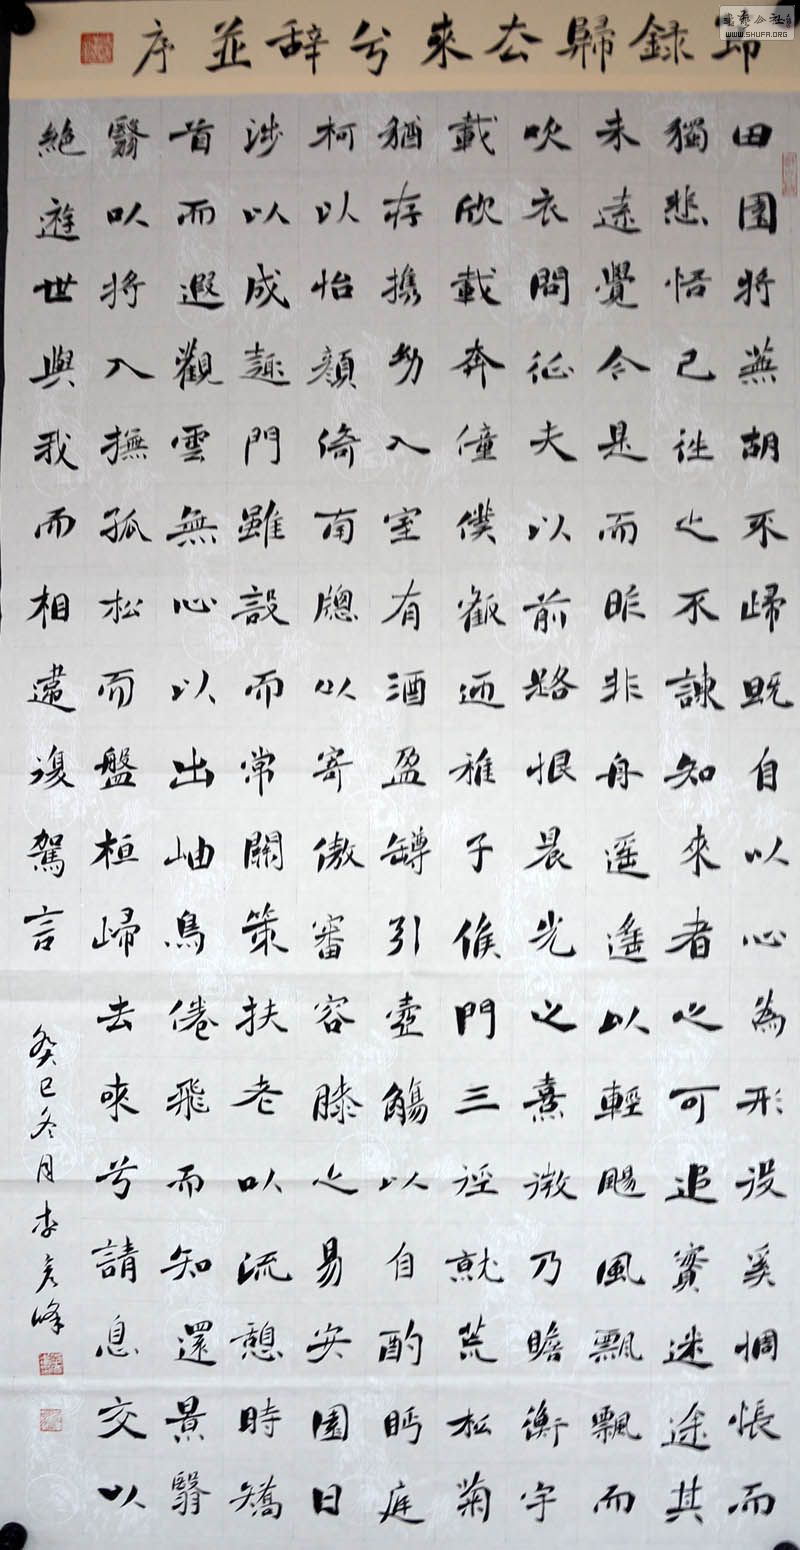 節錄歸去來兮辞並序
田園將蕪胡不歸既自以心為形役奚惆悵而
獨悲悟已往之不諫知來者之可追實迷途其
未遠覺今是而昨非舟遥遥以輕颺風飄飄而
吹衣問征夫以前路恨晨光之熹微乃瞻衡宇
載欣載奔僮僕歡迎稚子候門三徑就荒松菊
猶存攜幼入室有酒盈罇引壺觴以自酌眄庭
柯以怡顏倚南牕以寄傲審容膝之易安園日
涉以成趣門雖設而常關策扶老以流憩時矯
首而遐觀雲無心以出岫鳥倦飛而知還景翳
翳以將入撫孤松而盤桓歸去來兮請息交以
絕遊世與我而相違復駕言
癸巳冬月李彦峰
WWW.SHUFA.ORG